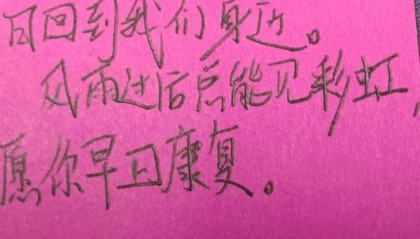 日回到我们身边。
风雨过后总能见彩虹,
愿你早日康复。